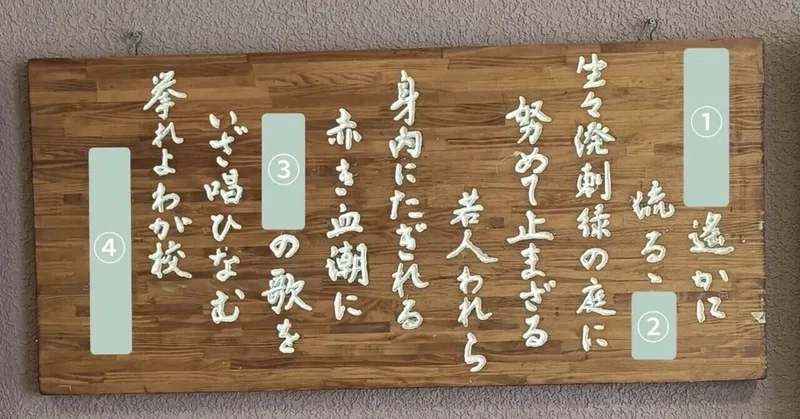 ① 遙かに
流るゝ ②
生々溌剌緑の庭に
努めて止まざる
若人われら
身内にたぎれる
赤き血潮に
③ の歌を
いざ唱ひなむ
挙れよわが校
④